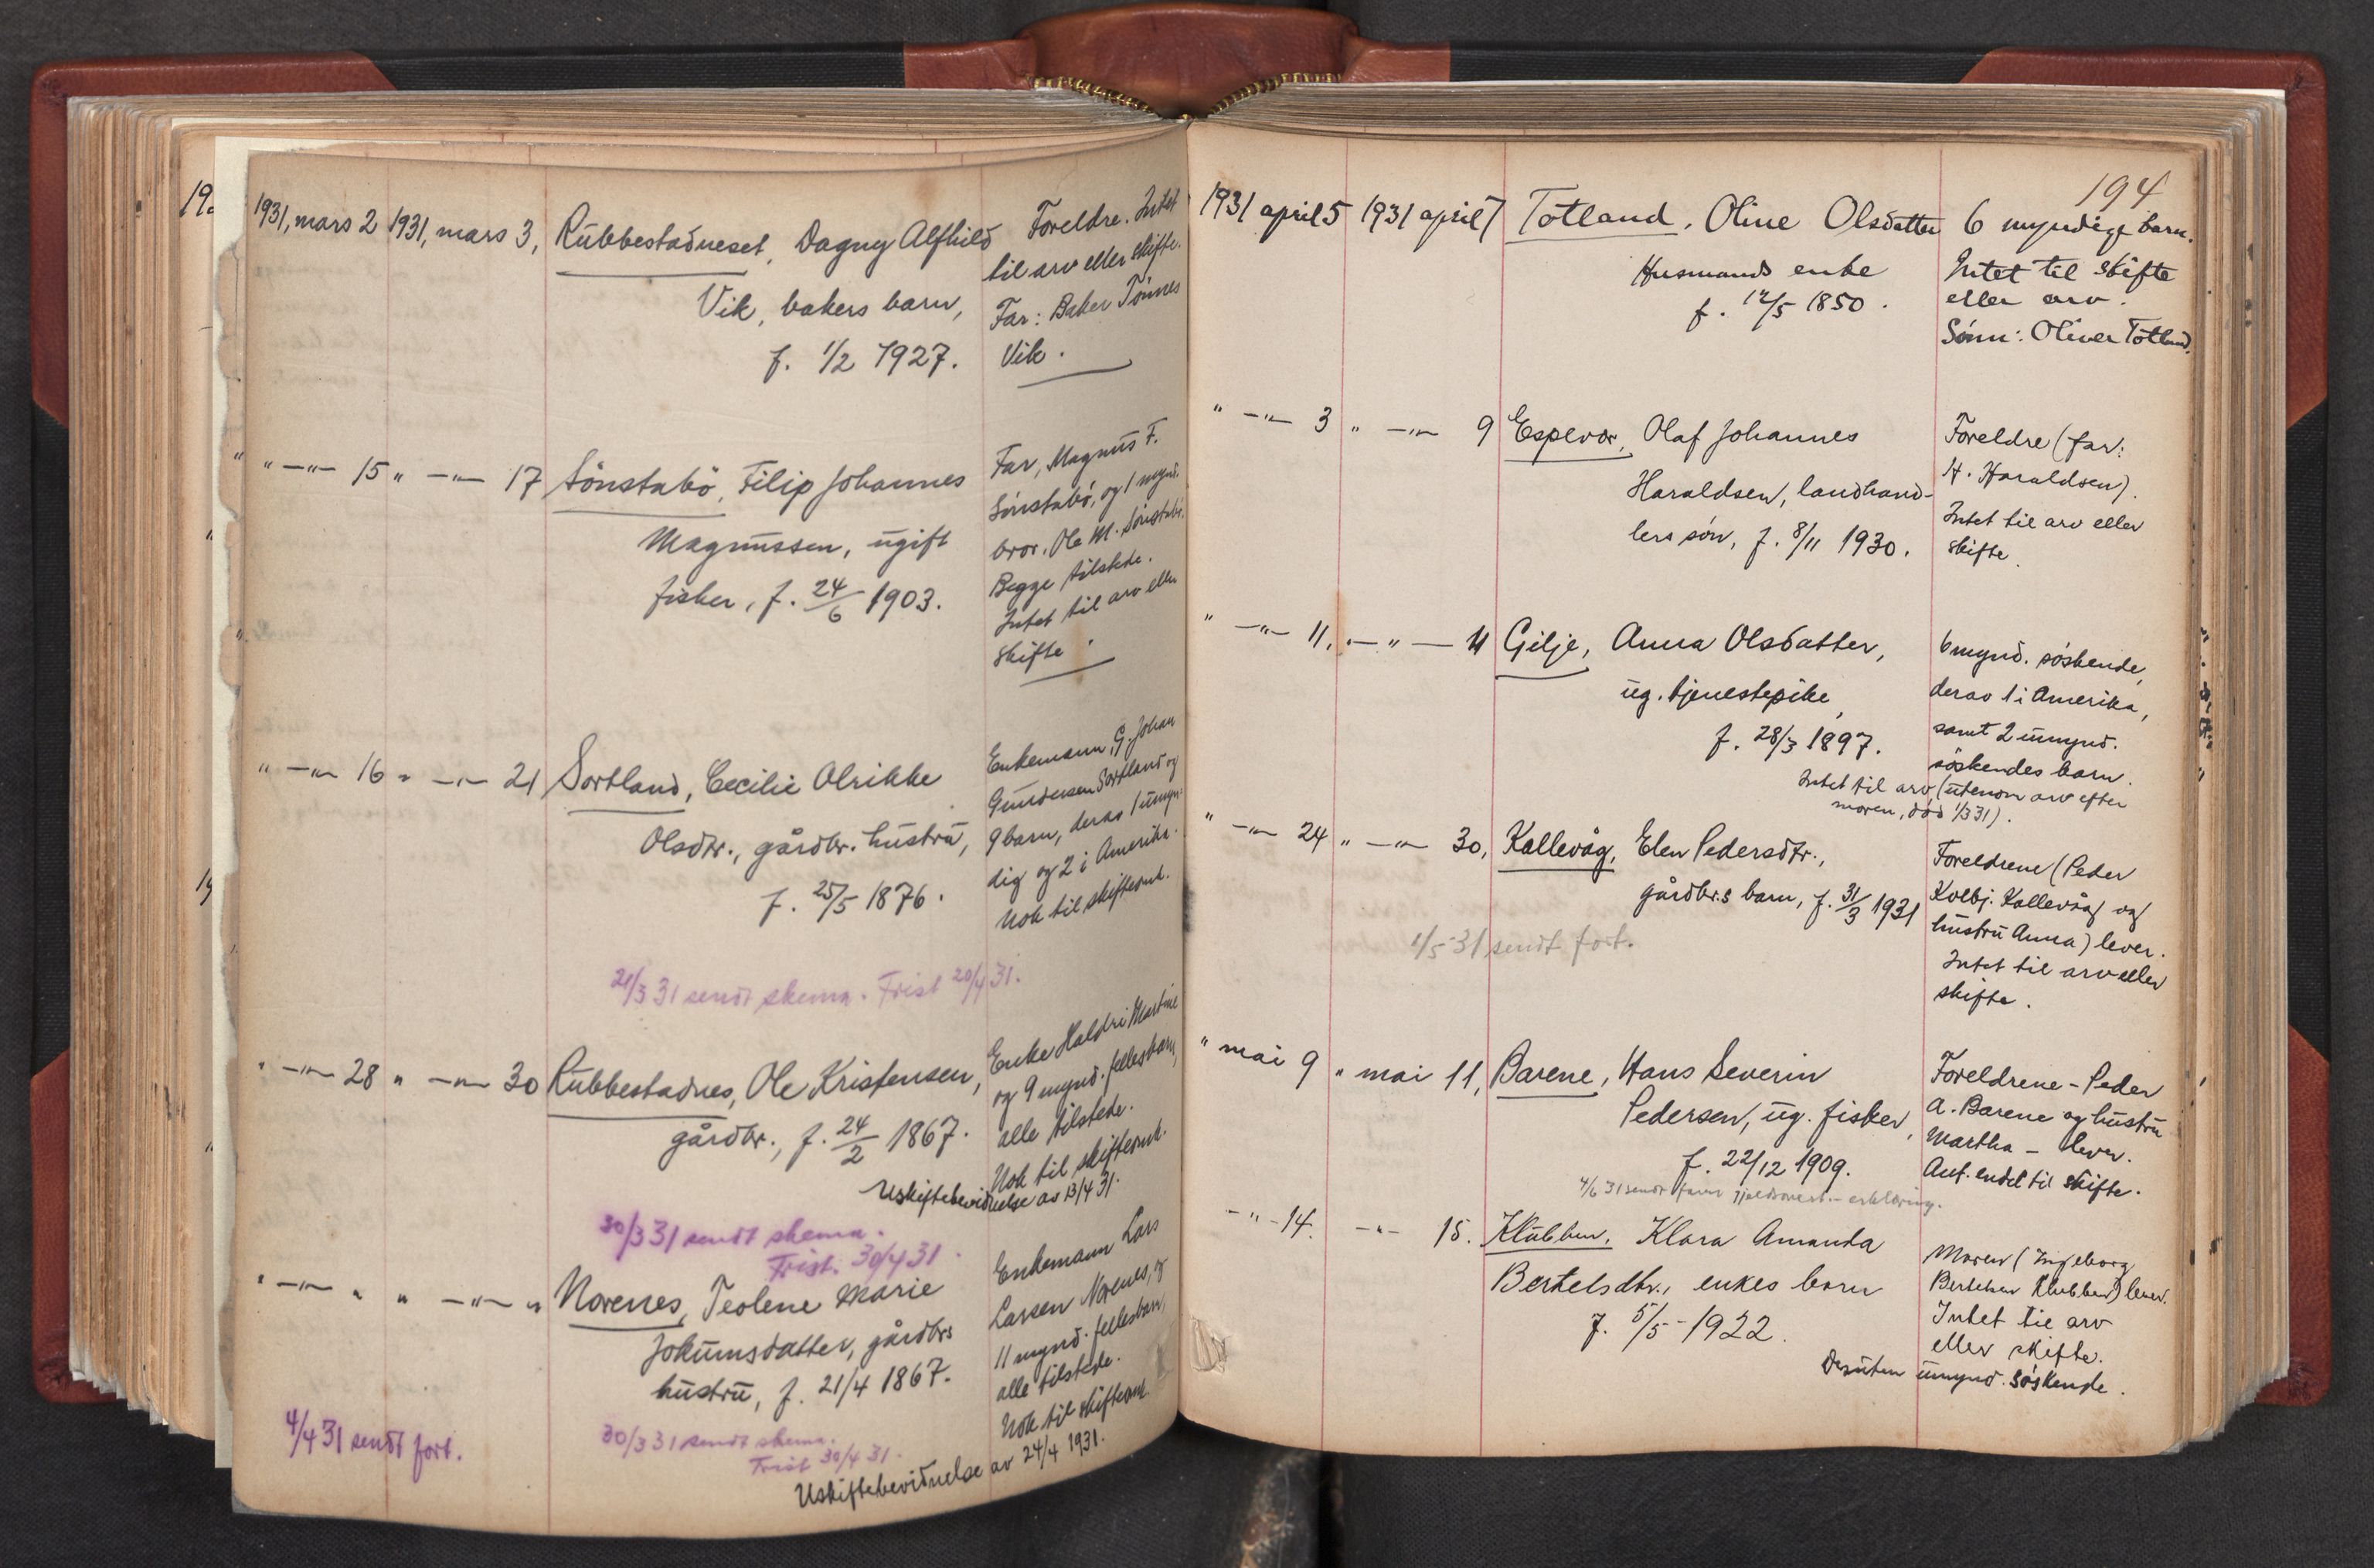 19
1931, mars 2 1931, mars 3, Rubbestadneset, Dagny Alfhild
Vik, bakers barn,
f. 1/2 1927.
Foreldre. Intet
til arv eller skifte.
Far: Baker Tönnes
Vik.
" —"— 15 " —"— 17 Sönstabö, Filip Johannes
Magnussen, ugift
fisker, f. 24/6 1903.
Far, Magnus F.
Sönstabö, og 1 mynd.
bror, Ole M. Sönstabö.
Begge tilstede.
Intet til arv eller
skifte.
" —"— 16 " —"— 21 Sortland, Cecilie Olrikke
Olsdtr., gårdbr. hustru,
f. 25/5 1876.
Enkemann, G. Johan
Gundersen Sortland og
9 barn, derav 1 umyn-
dig og 2 i Amerika.
Nok til skifteomk.
21/3 31 sendt skema. Frist 20/4 31.
" —"— 28 " —"— 30 Rubbestadnes, Ole Kristensen,
gårdbr., f. 24/2 1867.
Enke Haldri Martine
og 9 mynd. fellesbarn,
alle tilstede.
Nok til skifteomk.
Uskiftebevidnelse av 13/4 31.
30/3 31 sendt skema.
Frist. 30/4 31.
" —"— " " —"— " Norenes, Teolene Marie
Jokumsdatter, gårdbrs
hustru, f. 21/4 1867.
Enkemann Lars
Larsen Norenes, og
11 mynd. fellesbarn,
alle tilstede.
Nok til skifteomk.
4/4 31 sendt fort.
30/3 31 sendt skema.
Frist 30/4 31.
Uskiftebevidnelse av 24/4 1931.
194
1931 april 5 1931 april 7 Totland, Oline Olsdatter
Husmands enke
f. 12/5 1850.
6 myndige barn.
Intet til skifte
eller arv.
Sönn: Oliver Totland.
" —"— 3 " —"— 9 Espevær, Olaf Johannes
Haraldsen, landhand-
lers sön, f. 8/11 1930.
Foreldre (far:
H. Haraldsen).
Intet til arv eller
skifte.
" —"— 11, "—"— 11 Gilje, Anna Olsdatter,
ug. tjenestepike,
f. 28/3 1897.
6 mynd. söskende,
derav 1 i Amerika,
samt 2 umynd.
söskendes barn.
Intet til arv (utenom arv efter
moren, död 1/3 31).
" —"— 24 " —"— 30, Kallevåg, Elen Pedersdtr.,
gårdbr.s barn, f. 31/3 1931
Foreldrene (Peder
Kolbj. Kallevåg og
hustru Anna) lever.
Intet til arv eller
skifte.
1/5 31 sendt fort.
" mai 9 " mai 11, Barene, Hans Severin
Pedersen, ug. fisker,
f. 22/12 1909.
Foreldrene - Peder
A. Barene og hustru
Martha - lever.
Ant. endel til skifte.
4/6 31 sendt faren erklæring.
—"— 14. —"— 15. Klubben, Klara Amanda
Bertelsdtr., enkes barn
f. 5/5 - 1922.
Moren (Ingeborg
Bertelsen Klubben) lever.
Intet til arv
eller skifte.
Desuten umynd. söskende.